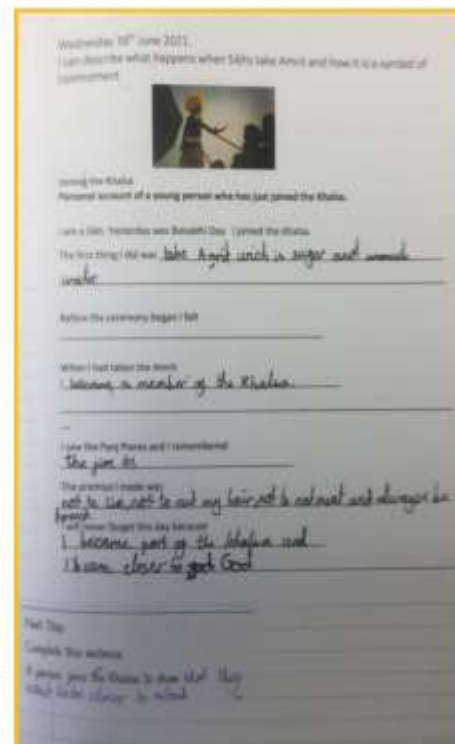 Wednesday 30th June 2021.
I can describe what happens when Sikhs take Amrit and how it is a symbol of
commitment.
Joining the Khalsa.
Personal account of a young person who has just joined the Khalsa.
I am a Sikh. Yesterday was Baisakhi Day. I joined the Khalsa.
The first thing I did was take Amrit wich is sugar and
water
Before the ceremony began I felt
When I had taken the Amrit
I became a member of the Khalsa.
I saw the Panj Piares and I remembered
The
The promise I made was
not to lie, not to cut my hair, not to eat meat and always be
I will never forget this day because
I became part of the khalsa and
closer to God
Next Step
Complete this sentence
A person joins the Khalsa to show that they
closer to